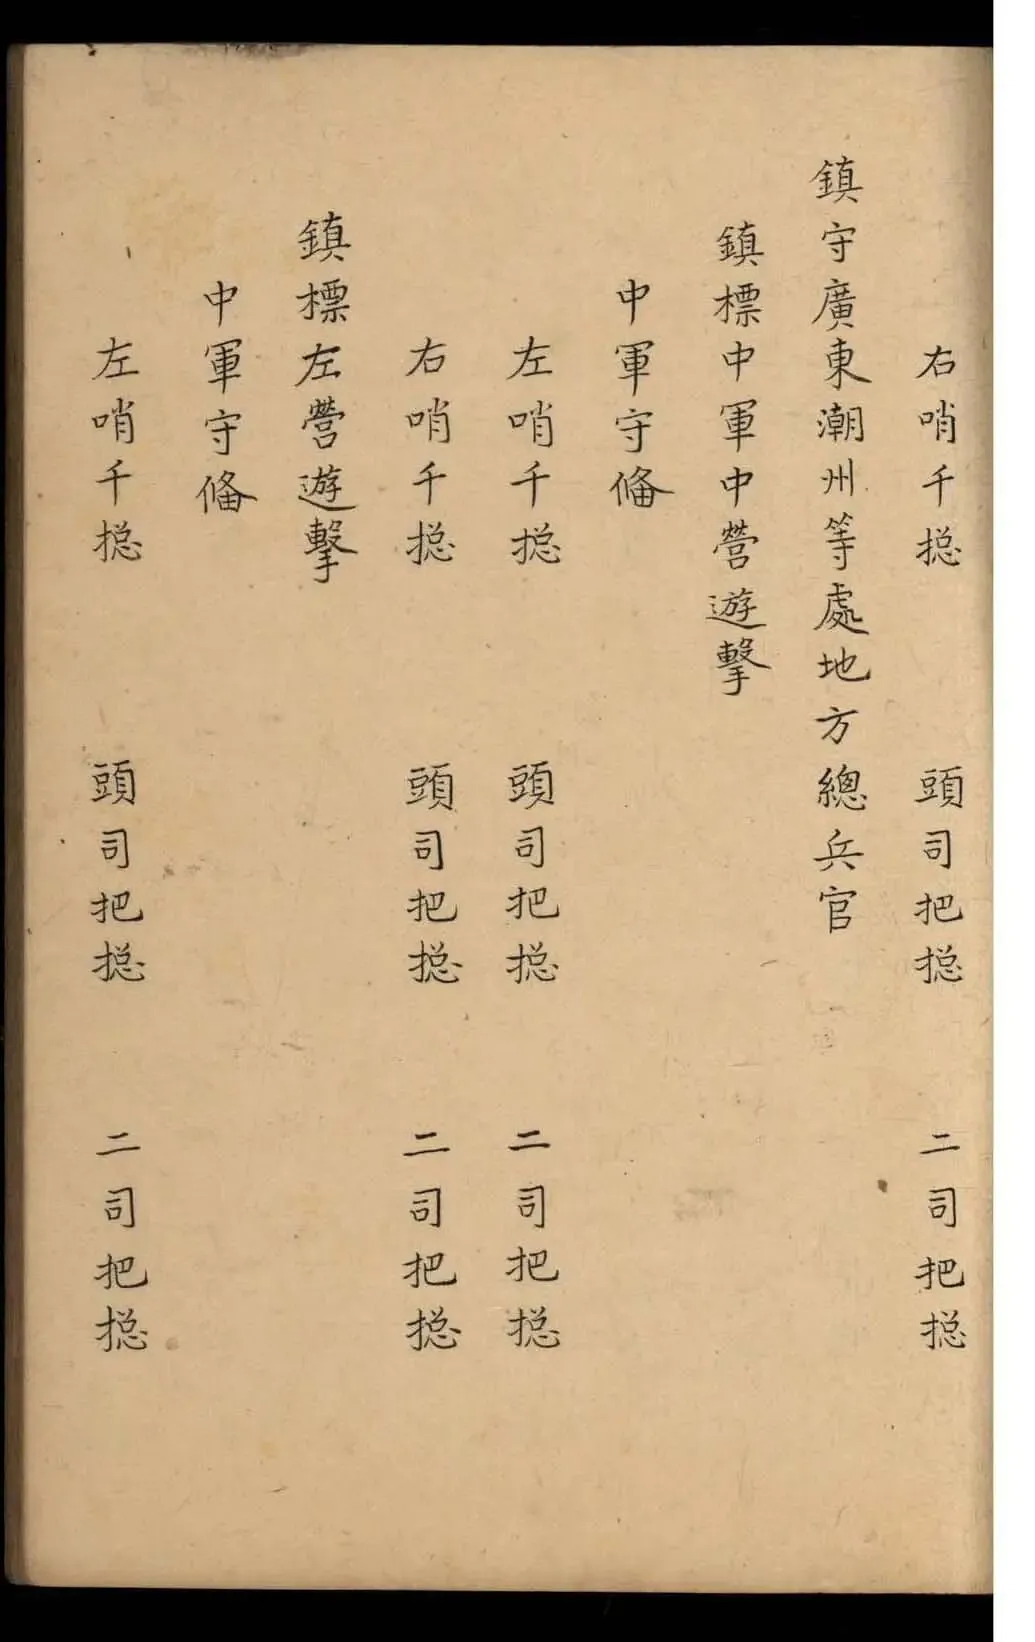 右哨千捴 頭司把捴 二司把捴
鎮守廣東潮州等處地方總兵官
鎮標中軍中營遊擊
中軍守俻
左哨千捴 頭司把捴 二司把捴
右哨千捴 頭司把捴 二司把捴
鎮標左營遊擊
中軍守俻
左哨千捴 頭司把捴 二司把捴